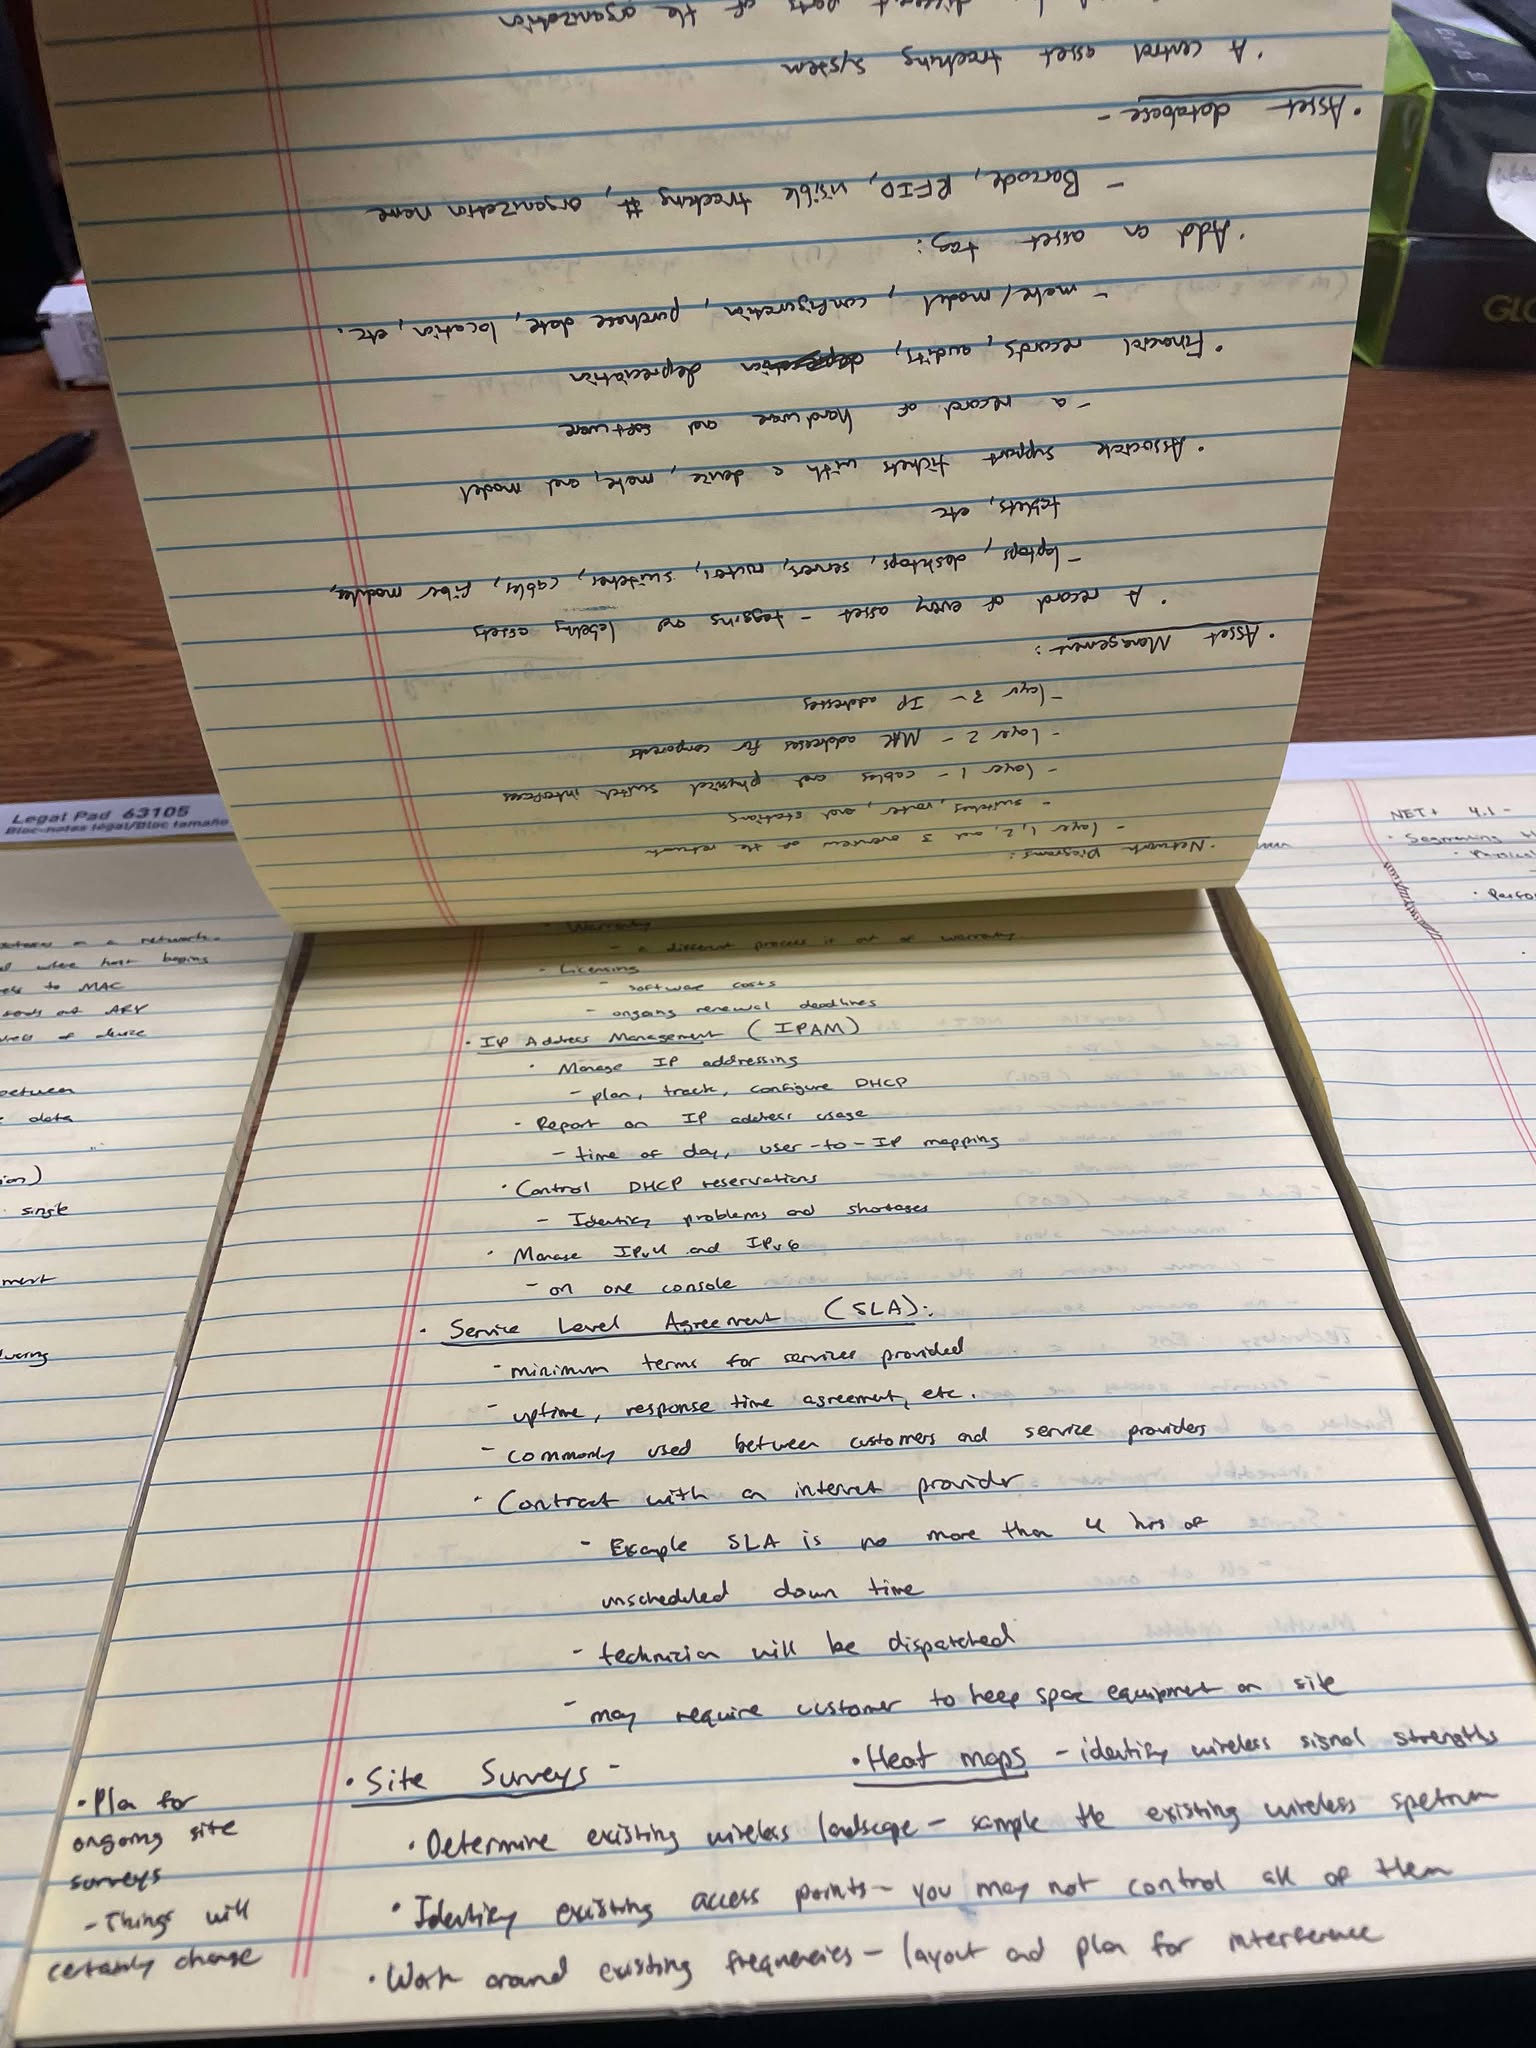 • Network Diagrams:
- Layer 1, 2, and 3 overview of the network
- switches, router, and stations
- Layer 1 - cables and physical switch interfaces
- Layer 2 - MAC addresses for components
- layer 3 - IP addresses
• Asset Management:
• A record of every asset - tagging and labeling assets
- laptops, desktops, servers, routers, switches, cables, fiber modules,
tablets, etc
• Associate support tickets with a device, make, and model
- a record of hardware and software
• Financial records, audits, depreciation
- make/model, configuration, purchase date, location, etc.
• Add an asset tag:
- Barcode, RFID, visible tracking #, organization name
• Asset database -
• A central asset tracking system
different parts of the organization
• Warranty
- a different process if out of warranty
- Licensing
- software costs
- ongoing renewal deadlines
• IP Address Management (IPAM)
• Manage IP addressing
- plan, track, configure DHCP
• Report on IP address usage
- time of day, user-to-IP mapping
• Control DHCP reservations
- Identify problems and shortages
• Manage IPv4 and IPv6
- on one console
• Service Level Agreement (SLA):
- minimum terms for services provided
- uptime, response time agreement, etc.
- commonly used between customers and service providers
• Contract with an internet provider
- Example SLA is no more than 4 hrs of
unscheduled down time
- technician will be dispatched
- may require customer to keep spare equipment on site
• Site Surveys -
• Heat maps - identify wireless signal strengths
• Determine existing wireless landscape - sample the existing wireless spetrum
• Identify existing access points - you may not control all of them
• Work around existing frequencies - layout and plan for interference
• Plan for
ongoing site
surveys
- Things will
certainly change
Legal Pad 63105
Bloc-notes légal/Bloc tamaño
on a network.
where host begins
to MAC
sends out ARP
of device
between
data
single
NET+ 4.1 -
• Segmenting
GLO